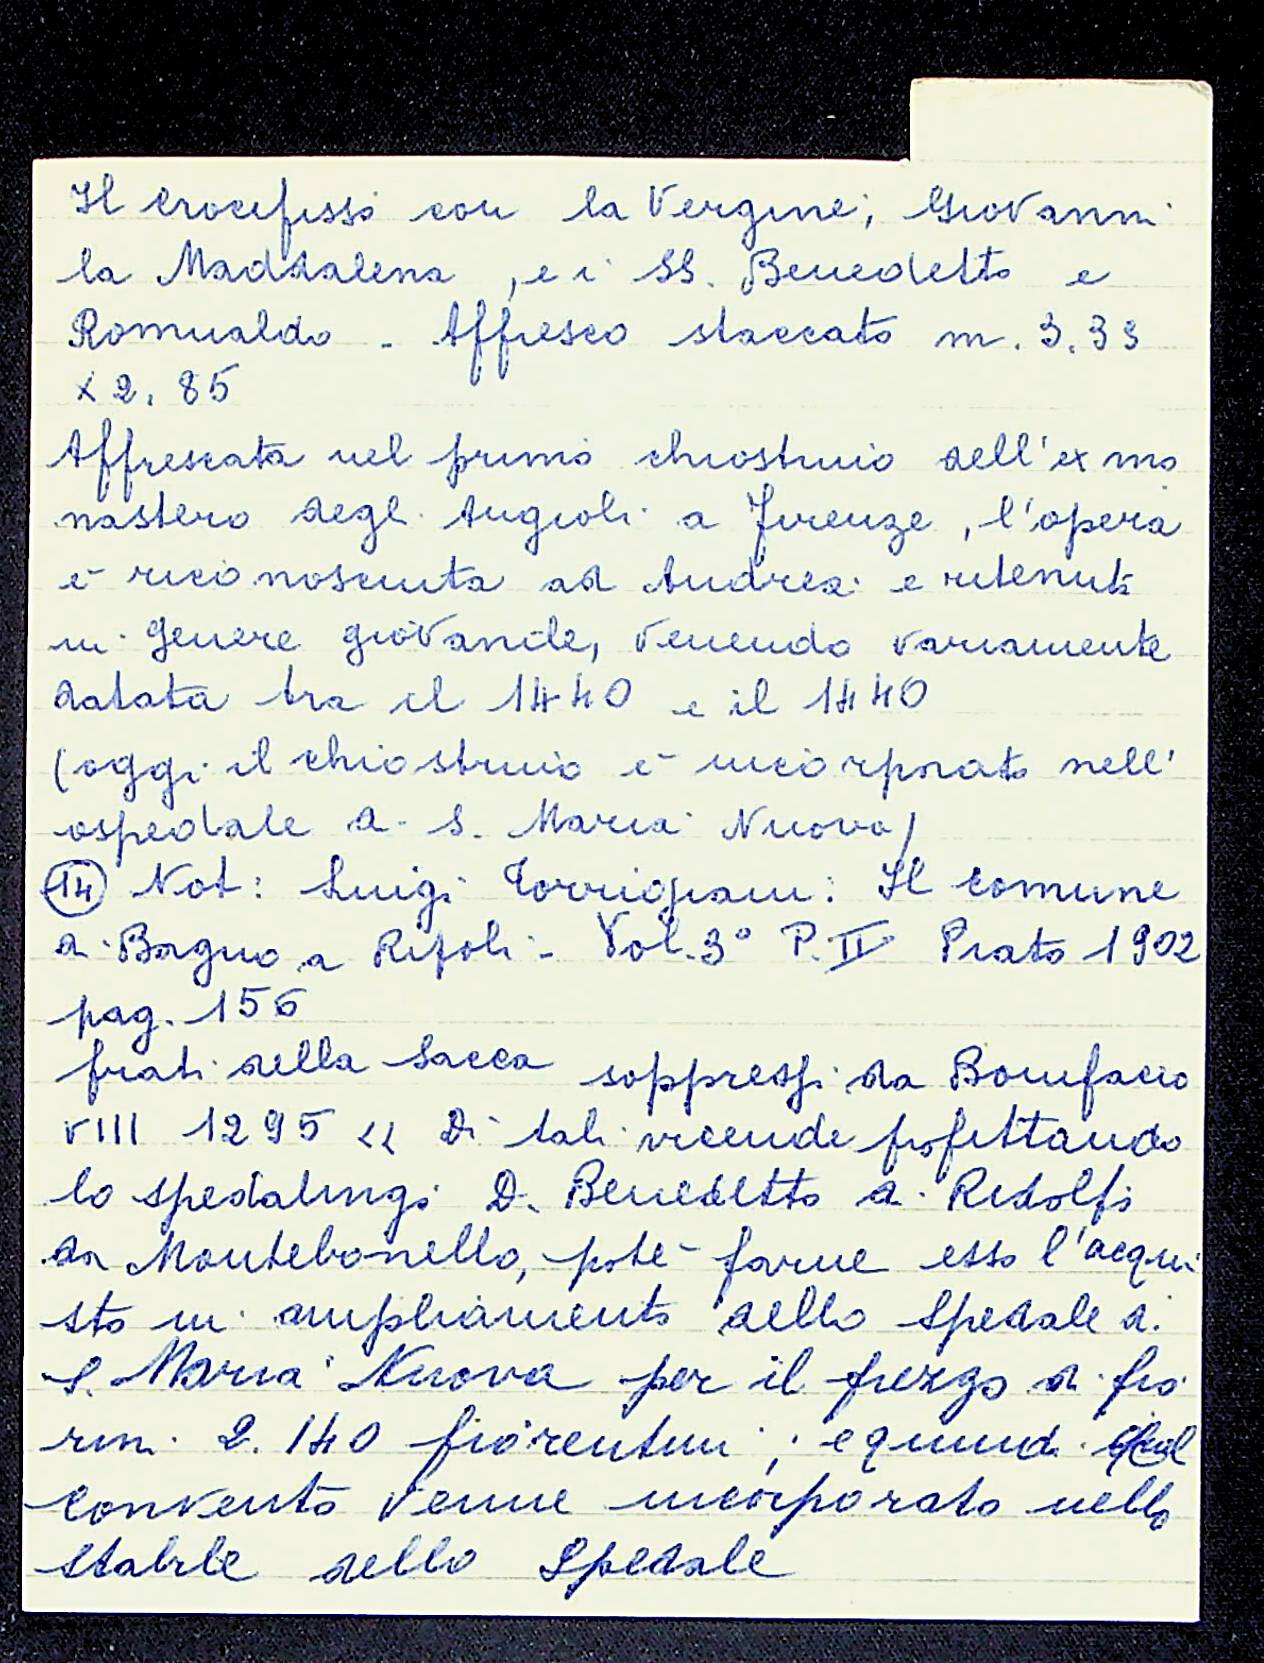 Il Crocifisso con la Vergine, Giovanni
la Maddalena, e i SS. Benedetto e
Romualdo - Affresco staccato m. 3.33
x 2.85
Affrescata nel primo chiostrino dell'ex mo
nastero degli Angioli a Firenze, l'opera
è riconosciuta ad Andrea e ritenuta
in genere giovanile, venendo variamente
datata tra il 1440 e il 1440
(oggi il chiostrino è incorporato nell'
ospedale di S. Maria Nuova)
14 Not: Luigi Torrigiani: Il Comune
di Bagno a Ripoli - Vol. 3° P. II Prato 1902
pag. 156
frati della Sacca soppressi da Bonifacio
VIII 1295 << Di tali vicende profittando
lo spedalingo D. Benedetto di Ridolfo
da Montebonello, poté farne esso l'acqui
sto in ampliamento dello Spedale di
S. Maria Nuova per il prezzo di fio
rini 2.140 fiorentini; e quindi il
Convento venne incorporato nello
stabile dello Spedale